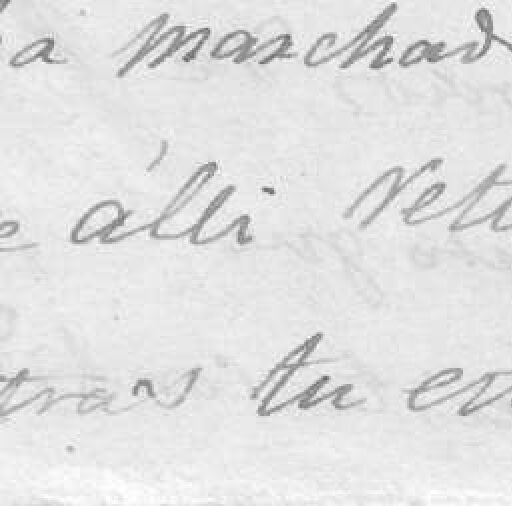 ha marchad
e álli Retr
tras tu en